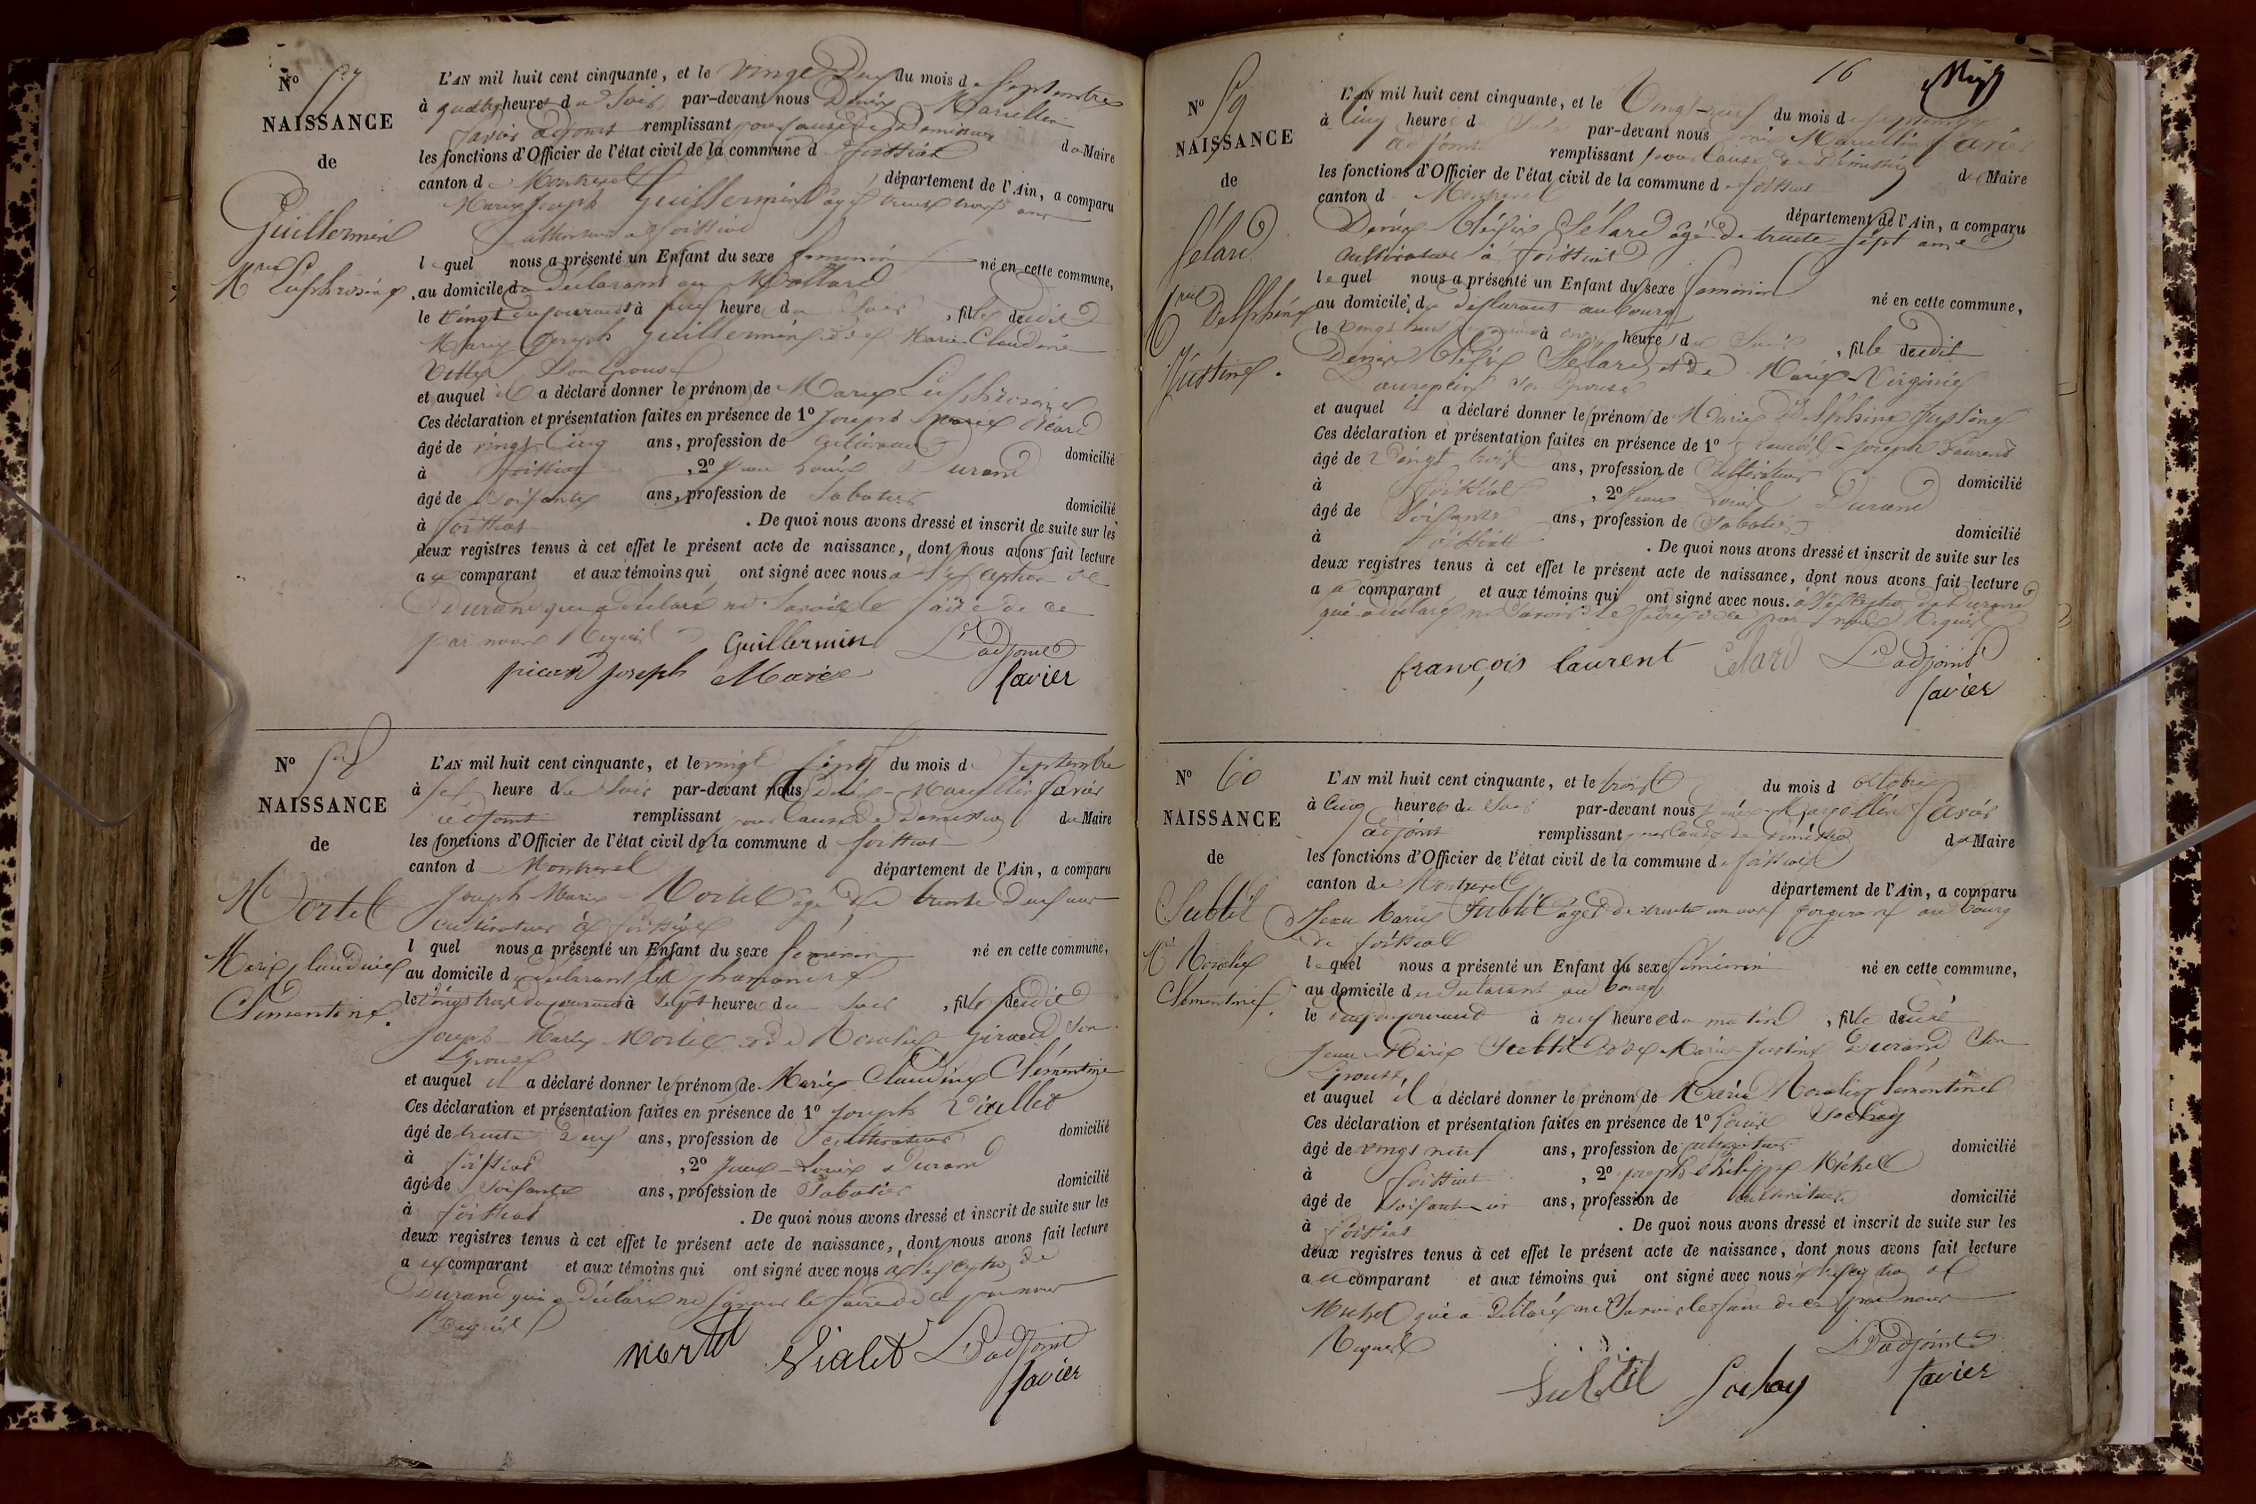 N° 57
NAISSANCE
de
Guillermin
Mie Euphrosine
L'AN mil huit cent cinquante, et le vingt Deux du mois de Septembre
à quatre heures du Soir par-devant nous Denis Marcellin
favier adjoint remplissant pour cause de Demission du Maire
les fonctions d'Officier de l'état civil de la commune de foissiat
canton de Montrevel département de l'Ain, a comparu
Marie Joseph Guillermin agé trente trois ans
cultivateur a foissiat
lequel nous a présenté un Enfant du sexe feminin né en cette commune,
au domicile du declarant au Mollard
le vingt du courant à heure du Soir, fille dudit
Marie Joseph Guillermin et de Marie Claudine
Son Epouse
et auquel il a déclaré donner le prénom de Marie Euphrosine
Ces déclaration et présentation faites en présence de 1° Joseph Marie Picard
âgé de vingt Cinq ans, profession de cultivateur domicilié
à foissiat, 2° Jean Louis Durand
âgé de Soixante ans, profession de Sabotier domicilié
à foissiat. De quoi nous avons dressé et inscrit de suite sur les
deux registres tenus à cet effet le présent acte de naissance, dont nous avons fait lecture
au comparant et aux témoins qui ont signé avec nous a l'exception de
Durand qui a déclaré ne Savoir le faire de ce
par nous Requis Guillermin L'adjoint
picard joseph Marie favier
N° 58
NAISSANCE
de
Mortel
Marie Claudine
Clementine.
L'AN mil huit cent cinquante, et le vingt Sept du mois de Septembre
à Six heure du Soir par-devant nous Denis Marcellin favier
adjoint remplissant pour Cause de Demission du Maire
les fonctions d'Officier de l'état civil de la commune d foissiat
canton d Montrevel département de l'Ain, a comparu
Joseph Marie Mortel agé de trente Deux ans
cultivateur à foissiat
l quel nous a présenté un Enfant du sexe feminin né en cette commune,
au domicile d declarant
le vingt trois du courant à Sept heure du Soir, fille dudit
Joseph Marie Mortel et de Rosalie Giraud Son
Epouse
et auquel il a déclaré donner le prénom de Marie Claudine Clémentine
Ces déclaration et présentation faites en présence de 1° Joseph Viallet
âgé de trente Deux ans, profession de Cultivateur domicilié
à foissiat, 2° Jean Louis Durand
âgé de Soixante ans, profession de Sabotier domicilié
à foissiat. De quoi nous avons dressé et inscrit de suite sur les
deux registres tenus à cet effet le présent acte de naissance, dont nous avons fait lecture
au comparant et aux témoins qui ont signé avec nous a l'exception de
Durand qui a déclaré ne Savoir le faire de ce par nous
Requis
mortel Vialet L'adjoint
favier
16
N° 59
NAISSANCE
de
Félard
Marie Delphine
Justine.
L'AN mil huit cent cinquante, et le Vingt-neuf du mois de Septembre
à Cinq heures d Soir par-devant nous Denis Marcellin favier
adjoint remplissant pour Cause de Demission du Maire
les fonctions d'Officier de l'état civil de la commune de foissiat
canton d Montrevel département de l'Ain, a comparu
Denis Félard agé de trente-Sept ans
cultivateur à foissiat
lequel nous a présenté un Enfant du sexe feminin né en cette commune,
au domicile du declarant au bourg
le Vingt huit du courant à onze heures du Soir, fille dudit
Denis Félard et de Marie Virginie
Son Epouse
et auquel il a déclaré donner le prénom de Marie Delphine Justine
Ces déclaration et présentation faites en présence de 1° François-Joseph Laurent
âgé de Vingt trois ans, profession de Cultivateur domicilié
à foissiat, 2° Jean Louis Durand
âgé de Soixante ans, profession de Sabotier domicilié
à foissiat. De quoi nous avons dressé et inscrit de suite sur les
deux registres tenus à cet effet le présent acte de naissance, dont nous avons fait lecture
au comparant et aux témoins qui ont signé avec nous. à l'exception de Durand
qui a déclaré ne Savoir le faire de ce par nous Requis
françois laurent L'adjoint
favier
N° 60
NAISSANCE
de
Subtil
Mie Rosalie
Clementine.
L'AN mil huit cent cinquante, et le trois du mois d octobre
à Cinq heures du Soir par-devant nous Denis Marcellin favier
adjoint remplissant pour Cause de Demission du Maire
les fonctions d'Officier de l'état civil de la commune de foissiat
canton de Montrevel département de l'Ain, a comparu
Jean Marie Subtil agé de trente un ans forgeron au bourg
de foissiat
lequel nous a présenté un Enfant du sexe feminin né en cette commune,
au domicile du declarant au bourg
le du courant à neuf heures du matin, fille dudit
Jean Marie Subtil et de Marie Justine Durand Son
Epouse
et auquel il a déclaré donner le prénom de Marie Rosalie Clementine
Ces déclaration et présentation faites en présence de 1° Louis Sochay
âgé de vingt neuf ans, profession de cultivateur domicilié
à foissiat, 2° Joseph Philippe Michel
âgé de Soixante ans, profession de domicilié
à foissiat. De quoi nous avons dressé et inscrit de suite sur les
deux registres tenus à cet effet le présent acte de naissance, dont nous avons fait lecture
au comparant et aux témoins qui ont signé avec nous à l'exception de
Michel qui a déclaré ne Savoir le faire de ce par nous
Requis L'adjoint
Subtil Sochay favier